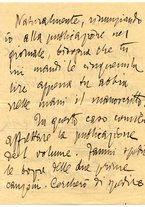 Naturalmente, rinunziando
io alla pubblicazione nel
giornale, bisogna che tu
mi mandi le cinquecento
lire appena tu abbia
nelle mani il manoscritto.
In questo caso conviene
affrettare la publicazione
del volume. Fammi spedire
le bozze delle due prime
canzoni. Cercherò di